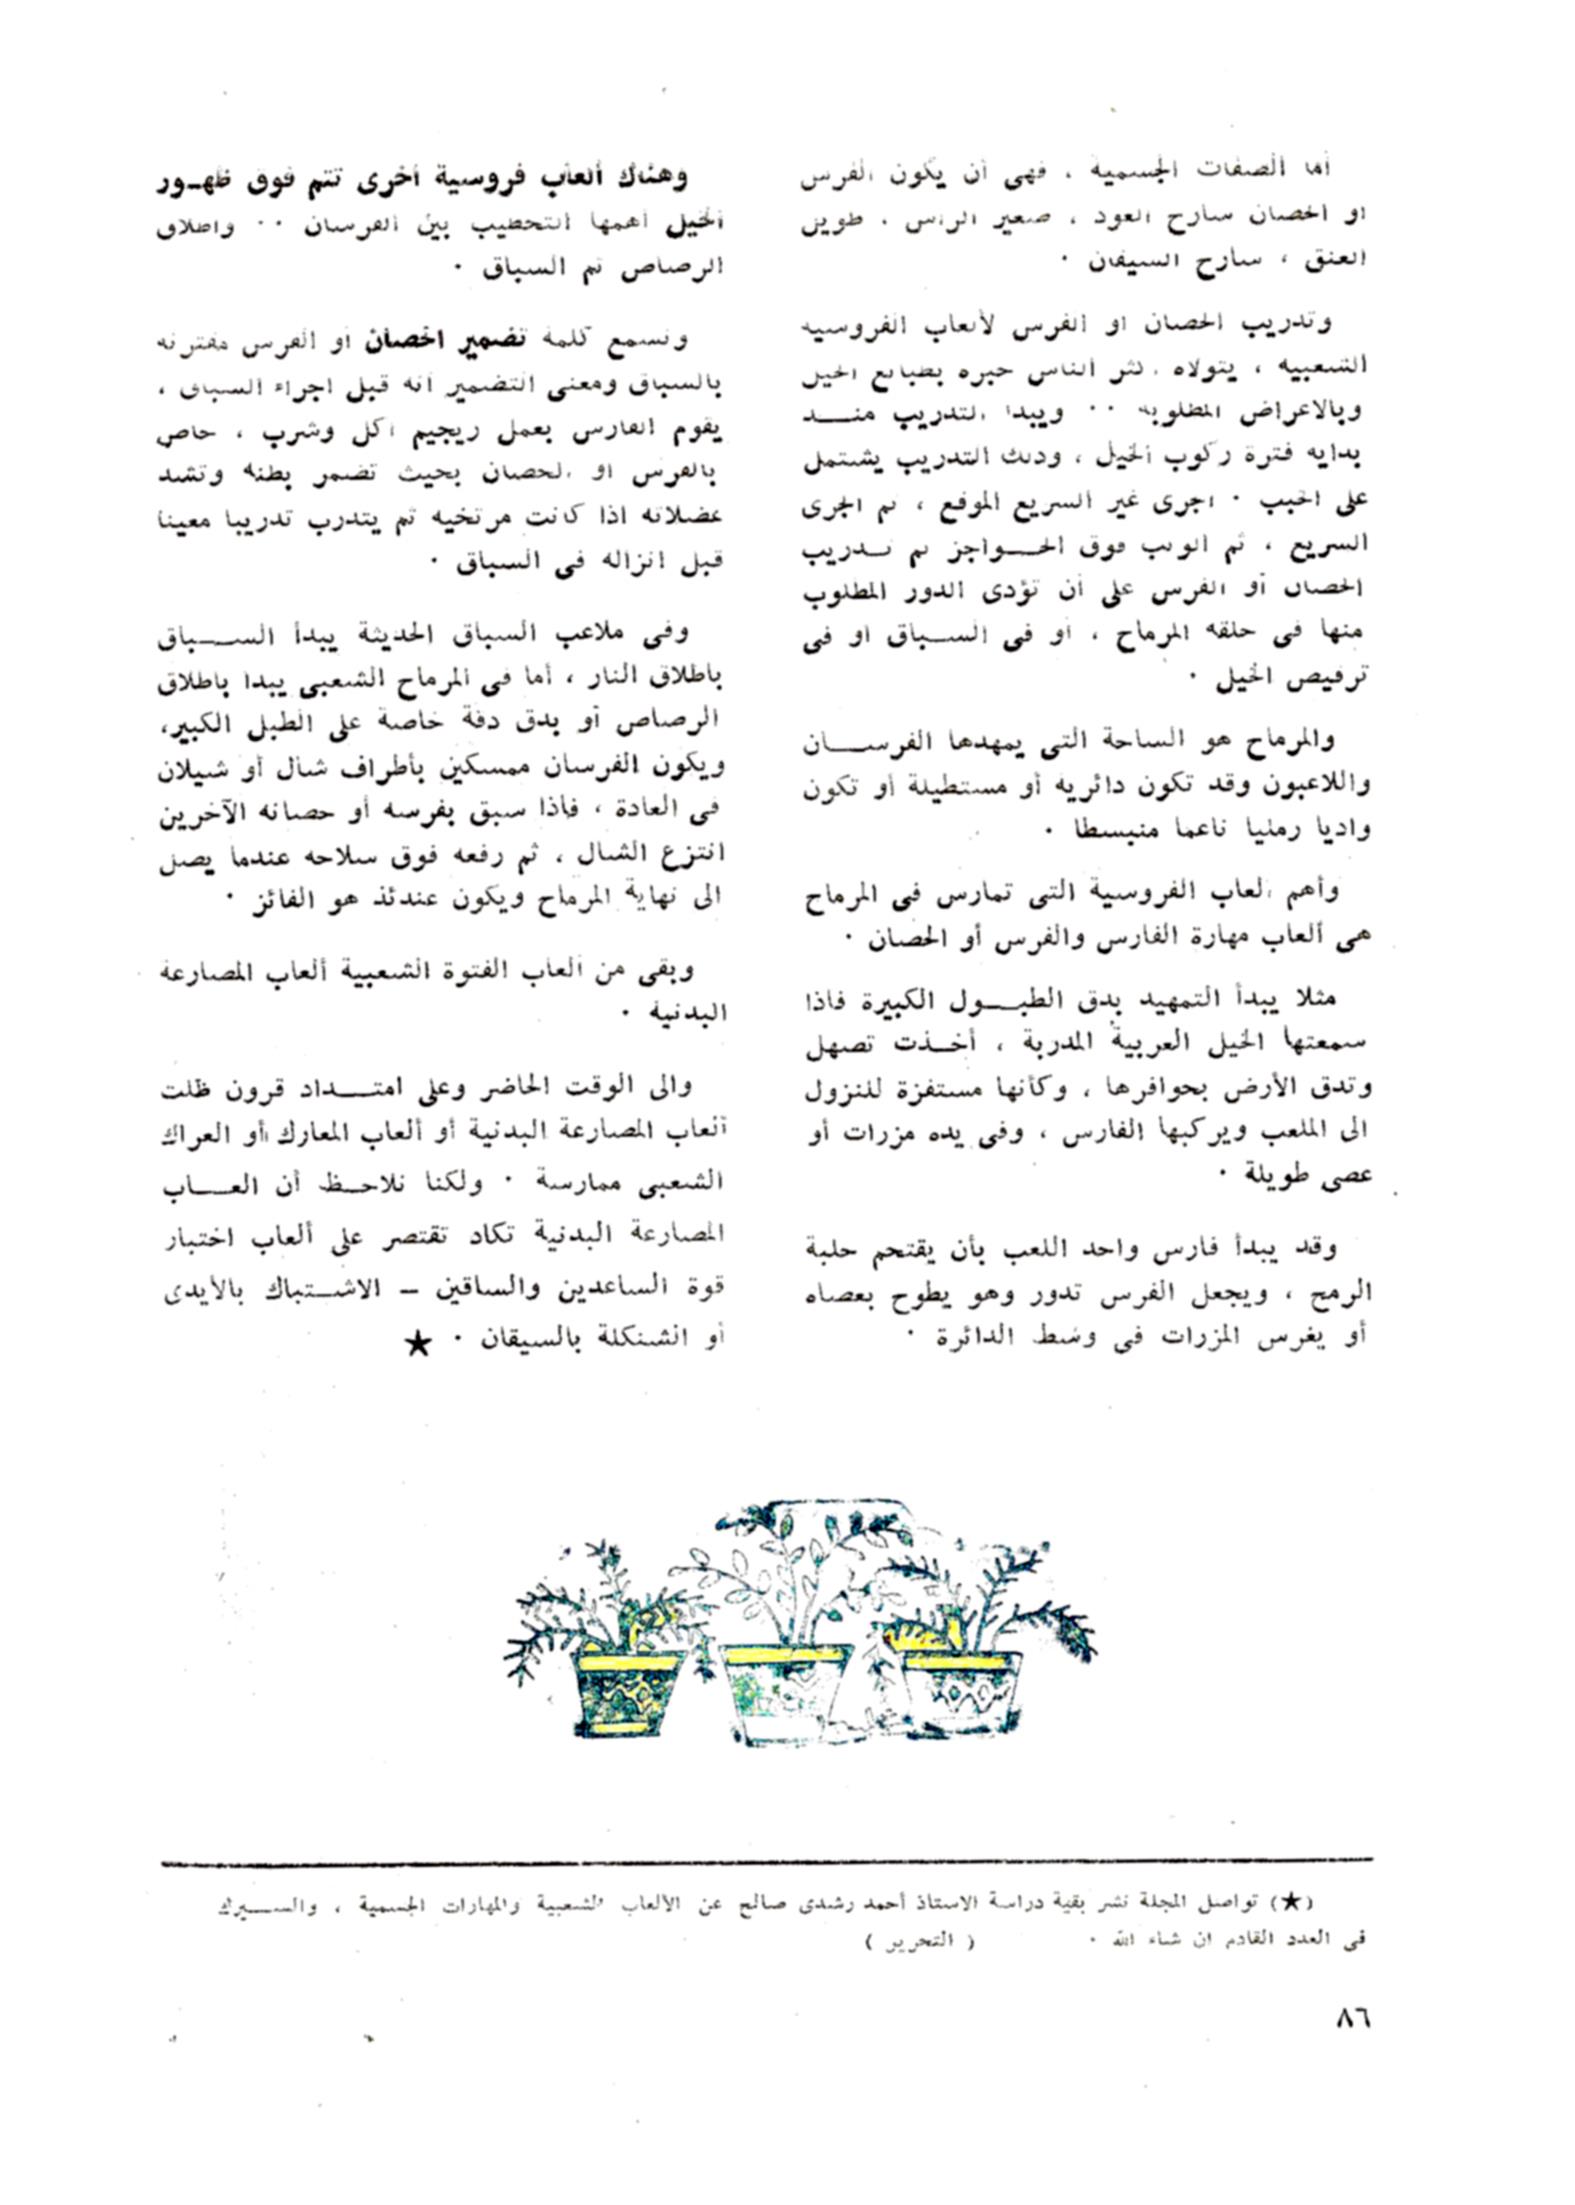 أما الصفات الجسمية ، فهى أن يكون الفرس
أو الحصان سارح العود ، صغير الرأس ، طويل
العنق ، سارح السيقان ·
وتدريب الحصان أو الفرس لألعاب الفروسية
الشعبية ، يتولاه أكثر الناس خبرة بطبائع الخيل
وبالأغراض المطلوبة ·· ويبدأ التدريب منـــذ
بداية فترة ركوب الخيل ، وذلك التدريب يشتمل
على الخبب · اجرى غير السريع الموقع ، ثم الجرى
السريع ، ثم الوثب فوق الحـــواجز ثم تـدريب
الحصان أو الفرس على أن تؤدى الدور المطلوب
منها فى حلقة المرماح ، أو فى الســباق أو فى
ترقيص الخيل ·
والمرماح هو الساحة التى يمهدها الفرســـان
واللاعبون وقد تكون دائرية أو مستطيلة أو تكون
واديا رمليا ناعما منبسطا ·
وأهم ألعاب الفروسية التى تمارس فى المرماح
هى ألعاب مهارة الفارس والفرس أو الحصان ·
مثلا يبدأ التمهيد بدق الطبـــول الكبيرة فاذا
سمعتها الخيل العربية المدربة ، أخـــذت تصهل
وتدق الأرض بحوافرها ، وكأنها مستفزة للنزول
الى الملعب ويركبها الفارس ، وفى يده مزرات أو
عصى طويلة ·
وقد يبدأ فارس واحد اللعب بأن يقتحم حلبة
الرمح ، ويجعل الفرس تدور وهو يطوح بعصاه
أو يغرس المزرات فى وسط الدائرة ·
وهناك ألعاب فروسية أخرى تتم فوق ظهـور
الخيل أهمها التحطيب بين الفرسان ·· واطلاق
الرصاص ثم السباق ·
ونسمع كلمة تضمير الحصان أو الفرس مقترنة
بالسباق ومعنى التضمير أنه قبل اجراء السباق ،
يقوم الفارس بعمل ريجيم أكل وشرب ، خاص
بالفرس أو الحصان بحيث تضمر بطنه وتشد
عضلاته اذا كانت مرتخية ثم يتدرب تدريبا معينا
قبل انزاله فى السباق ·
وفى ملاعب السباق الحديثة يبدأ الســـباق
باطلاق النار ، أما فى المرماح الشعبى يبدأ باطلاق
الرصاص أو بدق دقة خاصة على الطبل الكبير،
ويكون الفرسان ممسكين بأطراف شال أو شيلان
فى العادة ، فاذا سبق بفرسه أو حصانه الآخرين
انتزع الشال ، ثم رفعه فوق سلاحه عندما يصل
الى نهاية المرماح ويكون عندئذ هو الفائز ·
وبقى من ألعاب الفتوة الشعبية ألعاب المصارعة
البدنية ·
والى الوقت الحاضر وعلى امتـــداد قرون ظلت
ألعاب المصارعة البدنية أو ألعاب المعارك أو العراك
الشعبى ممارسة · ولكنا نلاحـــظ أن العـــاب
المصارعة البدنية تكاد تقتصر على ألعاب اختبار
قوة الساعدين والساقين – الاشـــتباك بالأيدى
أو الشنكلة بالسيقان · ★
(★) تواصل المجلة نشر بقية دراسة الاستاذ أحمد رشدى صالح عن الألعاب الشعبية والمهارات الجسمية ، والســـيرك
فى العدد القادم ان شاء الله · ( التحرير )
٨٦